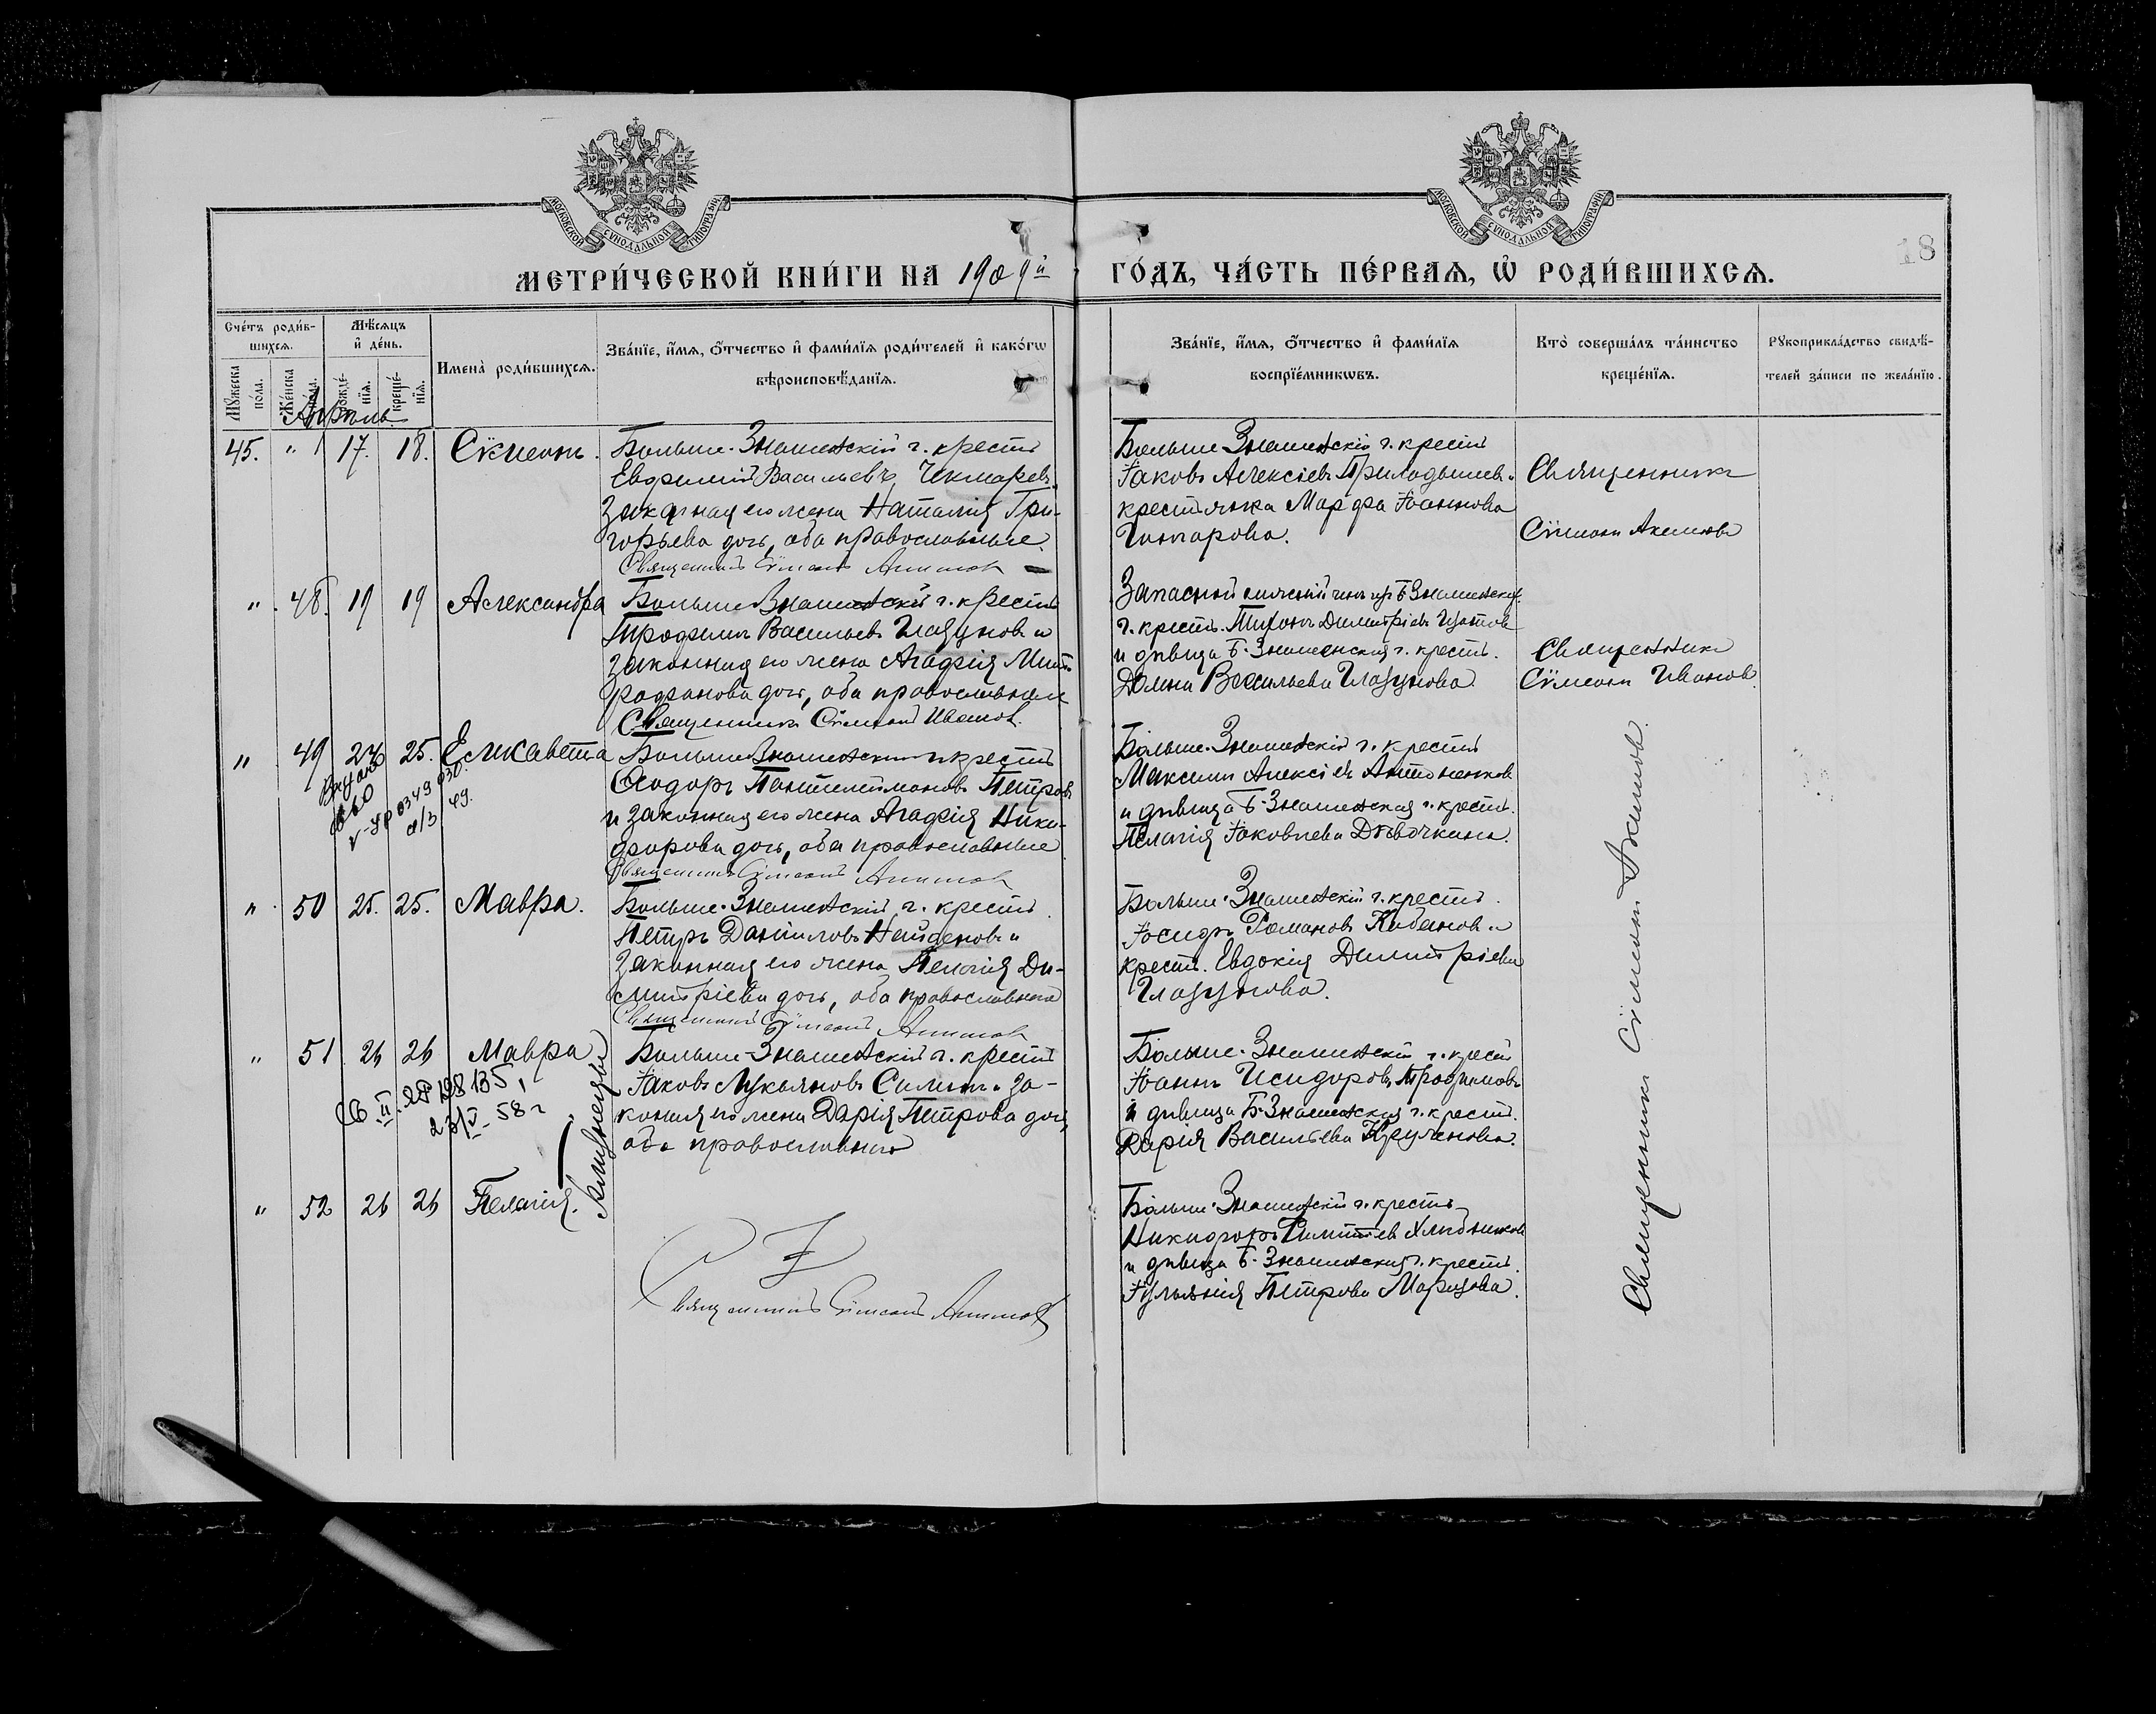 МОСКОВСКОЙ СУНОДАЛЬНОЙ ТИПОГРАФІИ
МОСКОВСКОЙ СУНОДАЛЬНОЙ ТИПОГРАФІИ
18
МЕТРИ́ЧЕСКОЙ КНИ́ГИ НА 1909й
ГО́ДЪ, ЧА́СТЬ ПЕ́РВАѦ, Ѡ҆ РОДИ́ВШИХСѦ.
Сче́тъ роди́в-
шихсѧ.
Мѣ́сѧцъ
и҆ де́нь.
Мꙋжеска
по́ла.
Же́нска
по́ла.
рожде́-
нїѧ.
креще́-
нїѧ.
Имена̀ роди́вшихсѧ.
Зва́нїе, и҆́мѧ, ѻ҆́тчество и҆ фами́лїѧ роди́телей и҆ како́гѡ
вѣроисповѣ́данїѧ.
Зва́нїе, и҆́мѧ, ѻ҆́тчество и҆ фами́лїѧ
воспрїе́мникѡвъ.
Кто̀ соверша́лъ та́инство
креще́нїѧ.
Рꙋкоприкла́дство свидѣ́-
телей за́писи по жела́нїю.
Апрѣль
45. " 17. 18. Сѵмеонъ.
Больше-Знаменскій г. крест
Евфимій Васильевъ Чекмарев
законная его жена Наталія Гри-
горьева дочь, оба православные
Священникъ Сѵмеонъ Акимов
Больше Знаменскій г. крест
Іаковъ Алексіев
крестьянка Марфа Іоаннова
Священникъ
Сѵмеонъ Акимов
" 48. 19 19 Александра
Больше Знаменскій г. крест
Трофимъ Васильевъ Глазунов и
законная его жена Агафія Мит-
рофанова дочь, оба православные
Священникъ Сѵмеонъ Иванов.
Запасной Б Знаменск.
г. крест. Тихонъ Димитріев
и дѣвица Б. Знаменская г. крест.
Васильева Глазунова
Священникъ
Сѵмеонъ Иванов
" 49 24 25. Елисавета
Больше Знаменскій г. крест
Ѳеодоръ Пантелеимоновъ Петров
и законная его жена Агафія Ники-
форова дочь, оба православные
Священникъ Сѵмеонъ Акимов
Больше-Знаменскій г. крест
Максимъ Алексіев Антоненков
и дѣвица Б-Знаменская г. крест.
Пелагія Іаковлева Дѣвочкина.
49.
" 50 25. 25. Мавра.
Больше-Знаменскій г. крест
Петръ Даниловъ Найденовъ и
законная его жена Пелагія Ди-
митріева дочь, оба православные
Священникъ Сѵмеонъ Акимов
Больше-Знаменскій г. крест.
Іосифъ Романовъ Кабанов и
крест. Евдокія Димитріева
Глазунова.
" 51 26 26 Мавра
Больше-Знаменскій г. крест
Іаковъ Лукьяновъ Силин и за-
конная его жена Дарія Петрова дочь,
оба православные
Больше-Знаменскій г. крест
Іоаннъ Исидоровъ Трофимовъ
и дѣвица Б-Знаменская г. крест.
Дарія Васильева
58 г
Близнецы
" 52 26 26 Пелагія.
Священникъ Сѵмеонъ Акимов
Больше-Знаменскій г. крест
Никифоръ Хлѣбников
и дѣвица Б-Знаменская г. крест.
Іуліанія Петрова
Священникъ Сѵмеонъ Акимов.